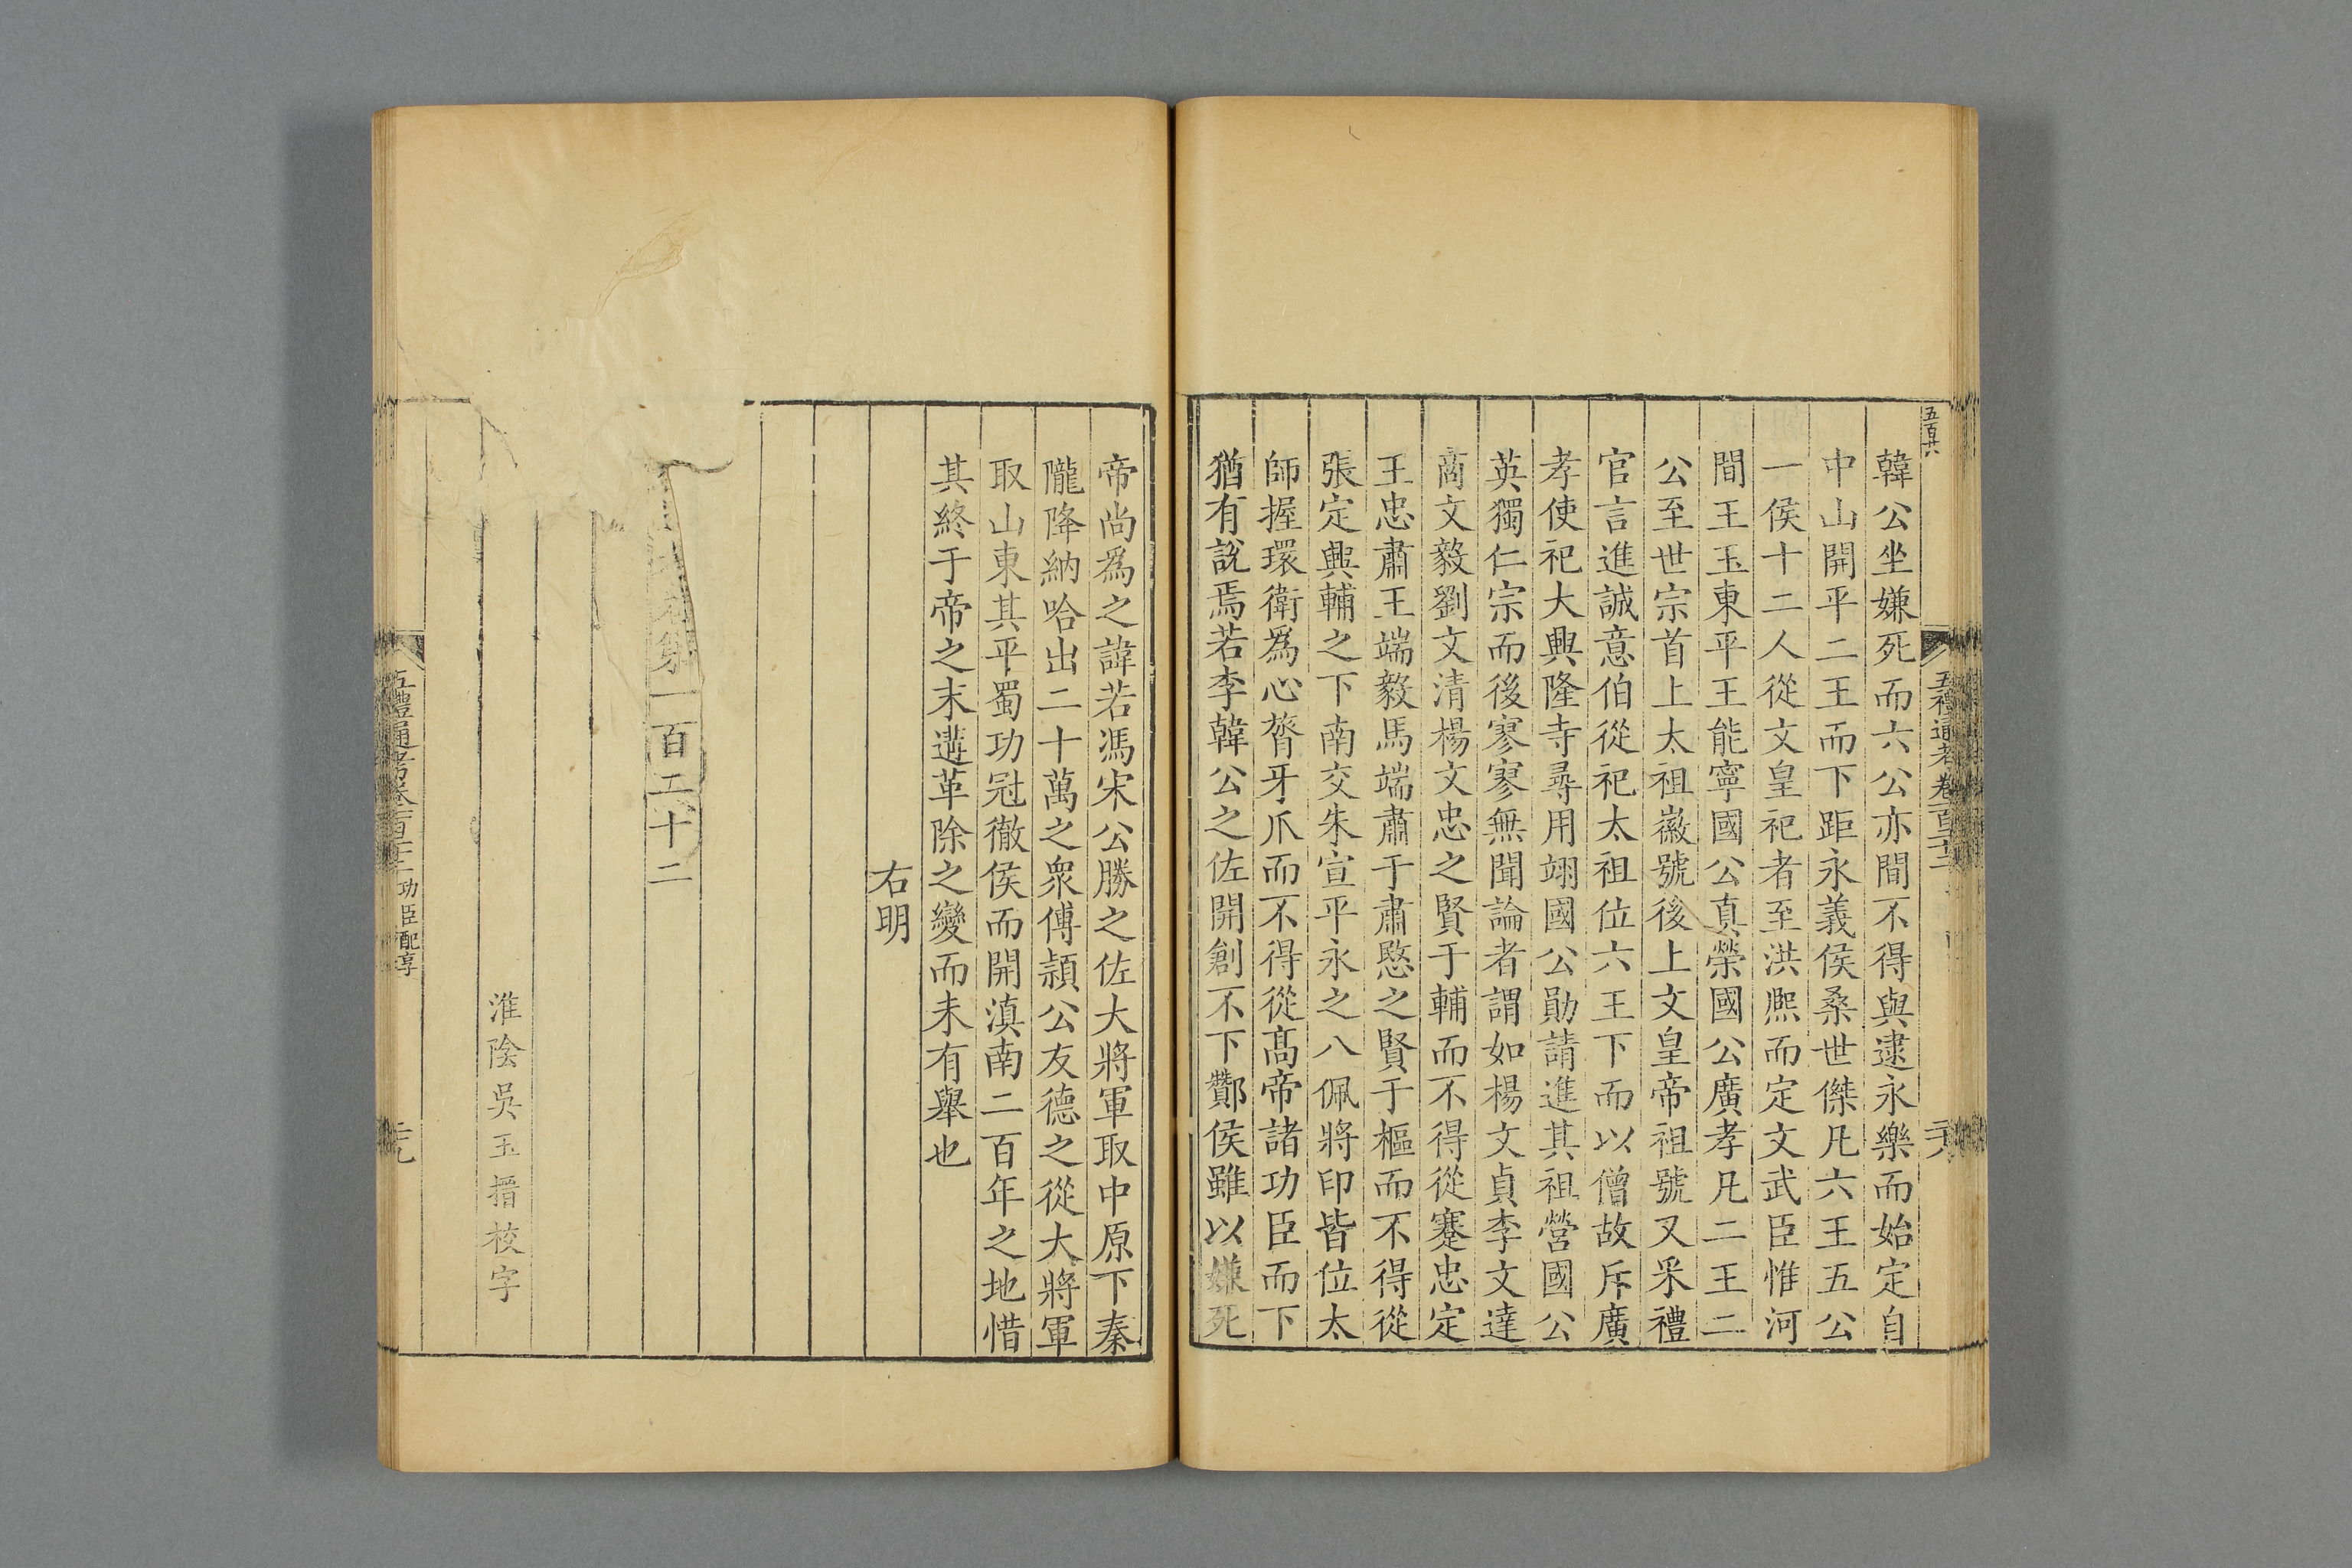 五百廿六
五禮通考卷一百二十二
韓公坐嫌死而六公亦間不得與逮永樂而始定自
中山開平二王而下距永義侯桑世傑凡六王五公
一侯十二人從文皇祀者至洪熙而定文武臣惟河
間王玉東平王能寧國公真榮國公廣孝凡二王二
公至世宗首上太祖徽號後上文皇帝祖號又采禮
官言進誠意伯從祀太祖位六王下而以僧故斥廣
孝使祀大興隆寺尋用翊國公勛請進其祖營國公
英獨仁宗而後寥寥無聞論者謂如楊文貞李文達
商文毅劉文清楊文忠之賢于輔而不得從蹇忠定
王忠肅王端毅馬端肅于肅愍之賢于樞而不得從
張定興輔之下南交朱宣平永之八佩將印皆位太
師握環衛爲心膂牙爪而不得從髙帝諸功臣而下
猶有說焉若李韓公之佐開創不下酇侯雖以嫌死
帝尚爲之諱若馮宋公勝之佐大將軍取中原下秦
隴降納哈出二十萬之衆傅潁公友德之從大將軍
取山東其平蜀功冠徹侯而開滇南二百年之地惜
其終于帝之末遘革除之變而未有舉也
右明
一百二十二
淮陰吳玉搢校字
五禮通考卷一百二十二 功臣配享